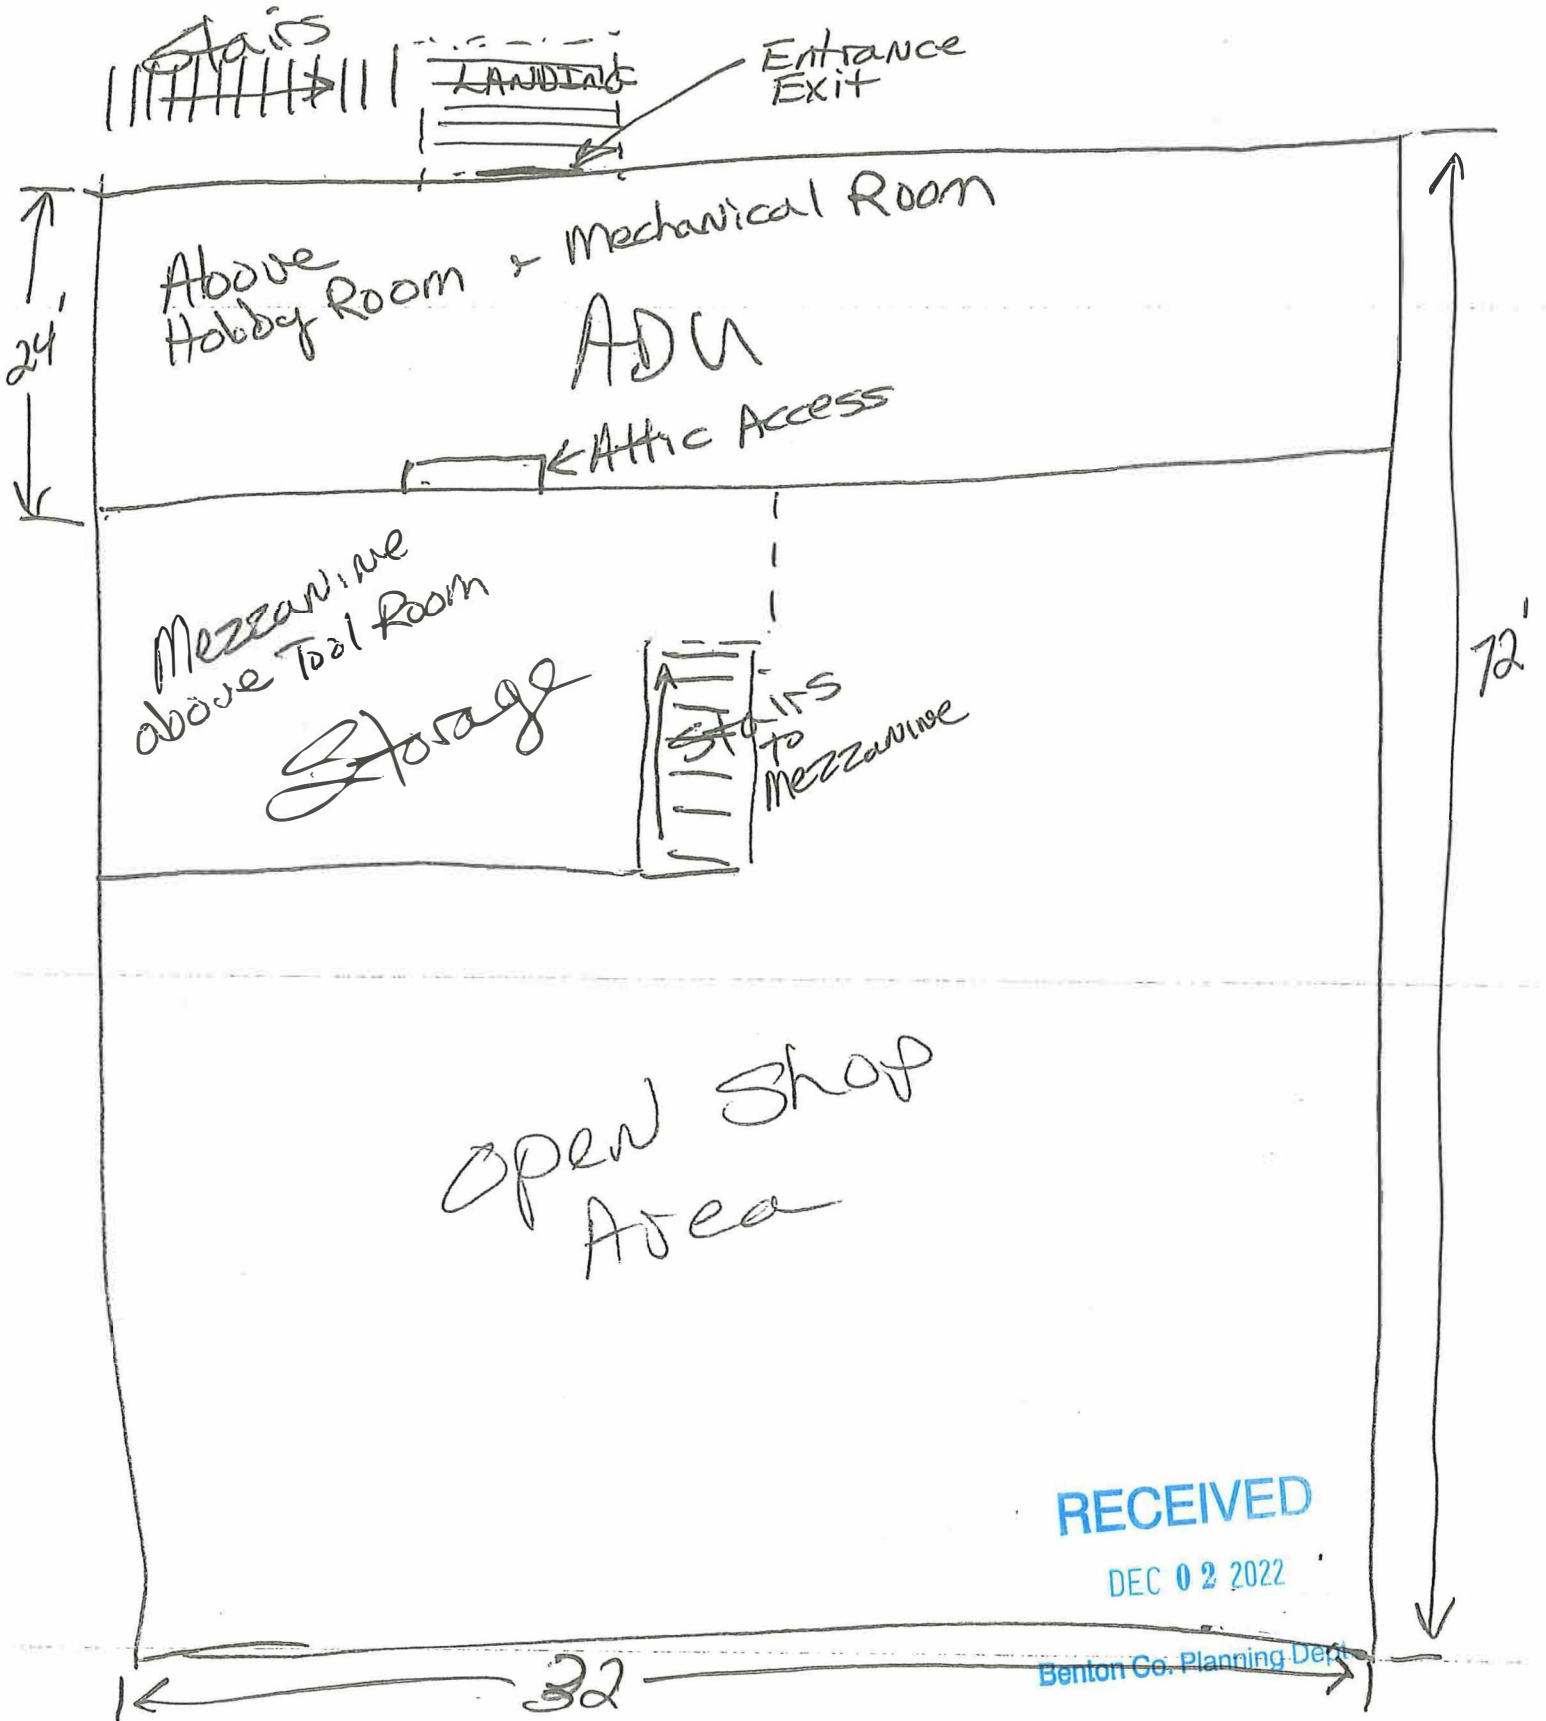 Stairs
LANDING
Entrance
Exit
24'
Above
Hobby Room + Mechanical Room
ADU
Attic Access
Mezzanine
above Tool Room
Storage
Stairs
to
Mezzanine
72'
Open Shop
Area
RECEIVED
DEC 02 2022
Benton Co. Planning Dept
32